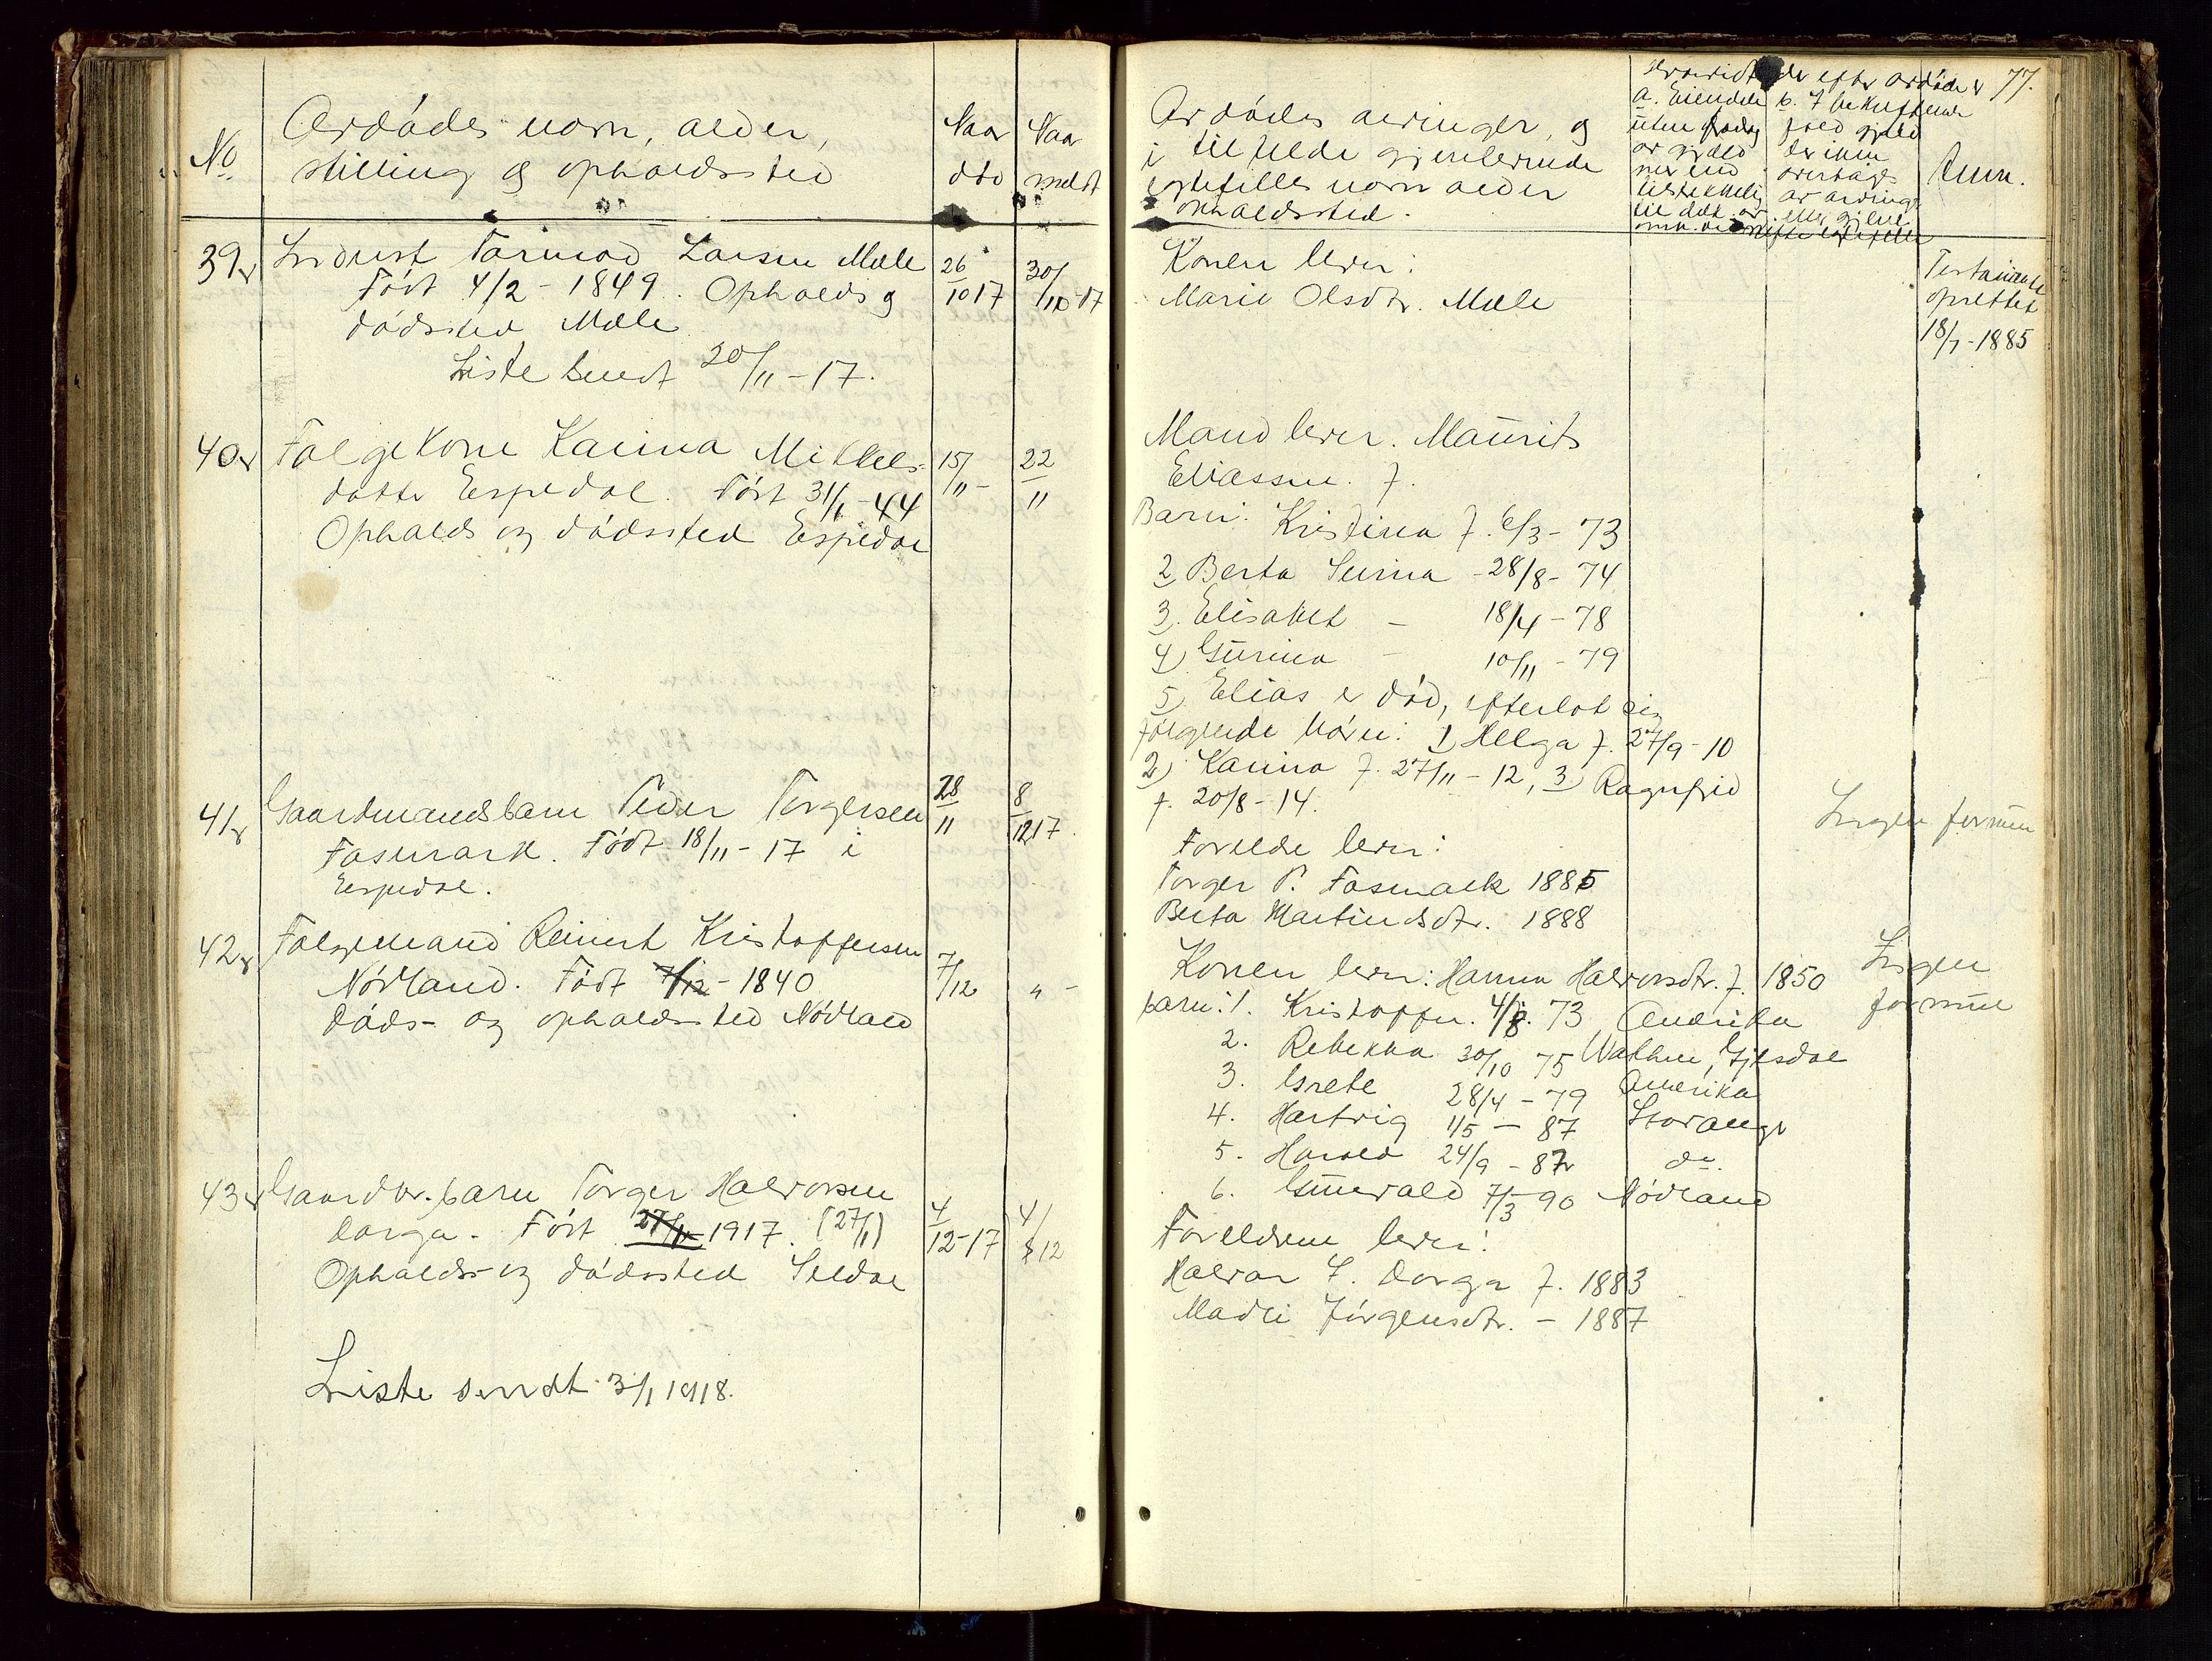 No
Avdødes navn, alder,
stilling og opholdssted
Naar
død
Naar
meldt
39
Inderst Tarmod Larsen Mæle
Født 4/2 - 1849. Opholds og
dødssted Mæle
Liste sendt 20/11 - 17.
26
10 17
30/
10-17
40
Følgekone Karina Mikkels-
datter Espedal. Født 31/1 - 44
Opholds og dødssted Espedal
15/
11 -
22
11
41
Gaardmandsbarn Peder Torgersen
Fasmark. Født 18/11 - 17 i
Espedal.
28
11
8
12 17
42
Følgemand Reinert Kristoffersen
Nødland. Født 7/12 - 1840
Døds- og opholdssted Nødland
7
/12
" -
43
Gaardbr. barn Torger Halvorsen
Dorga - Født 27/11 1917. (27/1)
Opholds- og dødssted Seldal
4
12-17
4/
12
Liste sendt 3/1 1918.
77.
Avdødes arvinger, og
i tilfelde gjenlevende
egtefelles navn alder
opholdssted.
a. Eiendele
uten fradrag
av gjæld
mer end
tilstrekkelig
til
efter avdøde er
b.
gjæld
der ikke
overtages
av arvinger
eller
Anm.
Konen lever:
Marie Olsdtr. Mæle
Testamente
oprettet
18/7 - 1885
Mand lever. Maurits
Eliassen. f.
Barn: Kristina f. 6/3 - 73
2 Berta Serina - 28/8 - 74
3. Elisabet - 18/4 - 78
4) Gurina - 10/11 - 79
5) Elias er død, efterlot sig
følgende børn: 1) Helga f. 27/9 - 10
2) Karina f. 27/11 - 12, 3) Ragnfrid
f. 20/8 - 14.
Forelde lever:
Torger P. Fasmark 1885
Berta Martinsdtr. 1888
Ingen formue
Konen lever: Hanna Halvorsdtr. f. 1850
barn: 1. Kristoffer. 4/8. 73 Amerika
2. Rebekka 30/10 75 Wathne, Gjesdal
3. Grete 28/4 - 79 Amerika
4. Hartvig 1/5 - 87 Stavanger
5. Harald 24/9 - 87 do.
6. Gunvald 7/3 90 Nødland
Ingen
formue
Foreldrene lever:
Halvor T. Dorga f. 1883
Madli Jørgensdtr. - 1887